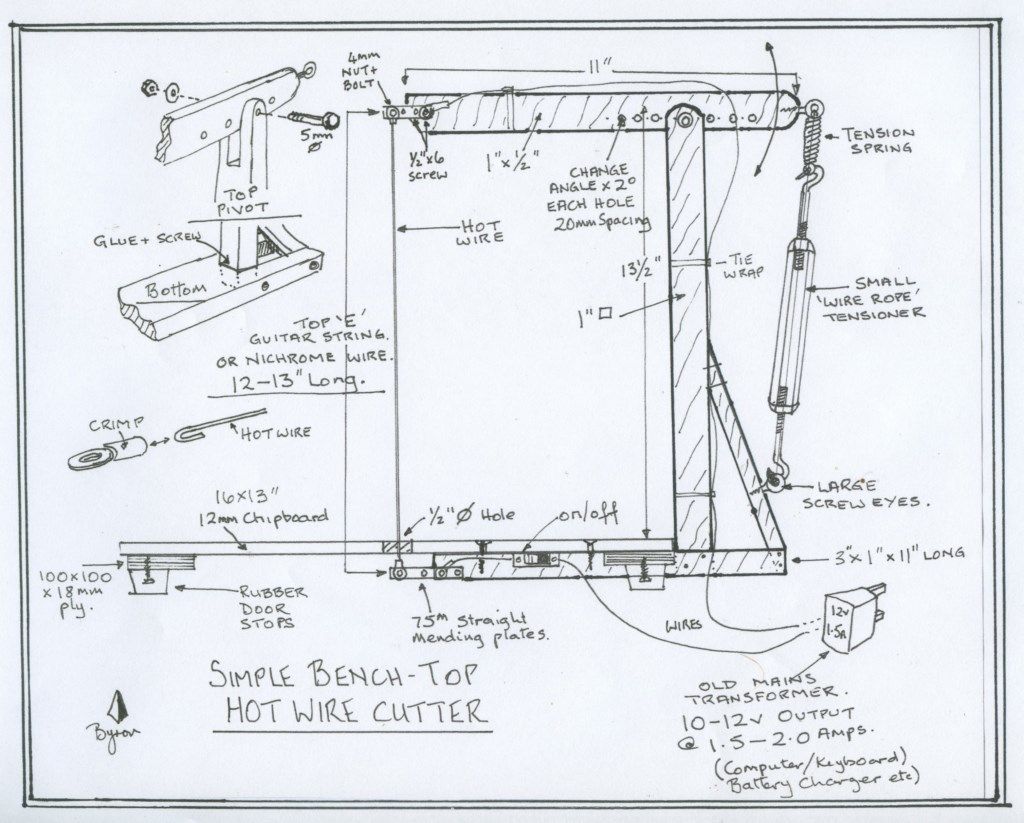 4mm
NUT+
BOLT
11"
5mm
Ø
½"x6
screw
1"x½"
CHANGE
ANGLE x 2°
EACH HOLE
20mm Spacing
TENSION
SPRING
TOP
PIVOT
GLUE + SCREW
Bottom
HOT
WIRE
13½"
TIE
WRAP
1" □
SMALL
'WIRE ROPE'
TENSIONER
TOP 'E'
GUITAR STRING.
OR NICHROME WIRE.
12-13" Long.
CRIMP
HOTWIRE
16x13"
12mm Chipboard
½"Ø Hole
on/off
LARGE
SCREW EYES.
3"x1"x11" LONG
100x100
x18mm
ply.
RUBBER
DOOR
STOPS
75m Straight
mending plates.
WIRES
12v
1.5A
SIMPLE BENCH-TOP
HOT WIRE CUTTER
OLD MAINS
TRANSFORMER.
10-12v OUTPUT
@ 1.5-2.0 AMPS.
(Computer/Keyboard)
Battery Charger etc)
Byron